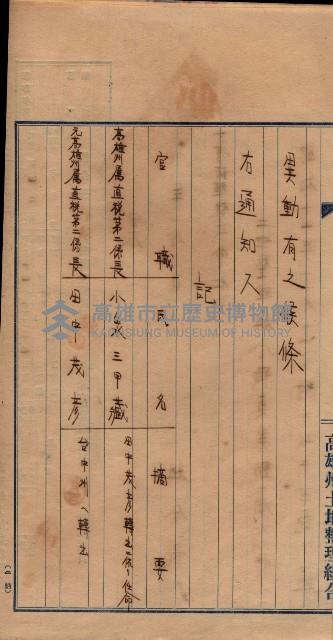 異動有之候條
右通知ス
記
官職氏名摘要
高雄州属直税第二係長 小泉三甲藏 田中茂彦轉之ニ依リ任命
元高雄州属直税第二係長 田中茂彦 台中州ヘ轉之
高雄州土地整理組合
高雄市立歷史博物館
KAOHSIUNG MUSEUM OF HISTORY